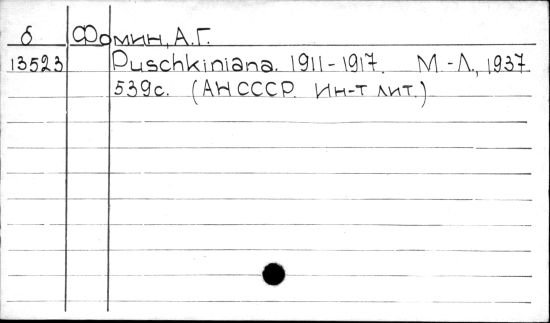 б Фомин, А.Г.
13523 Puschkiniana. 1911-1917. М.-Л., 1937.
539с. (АН СССР. Ин-т лит.)